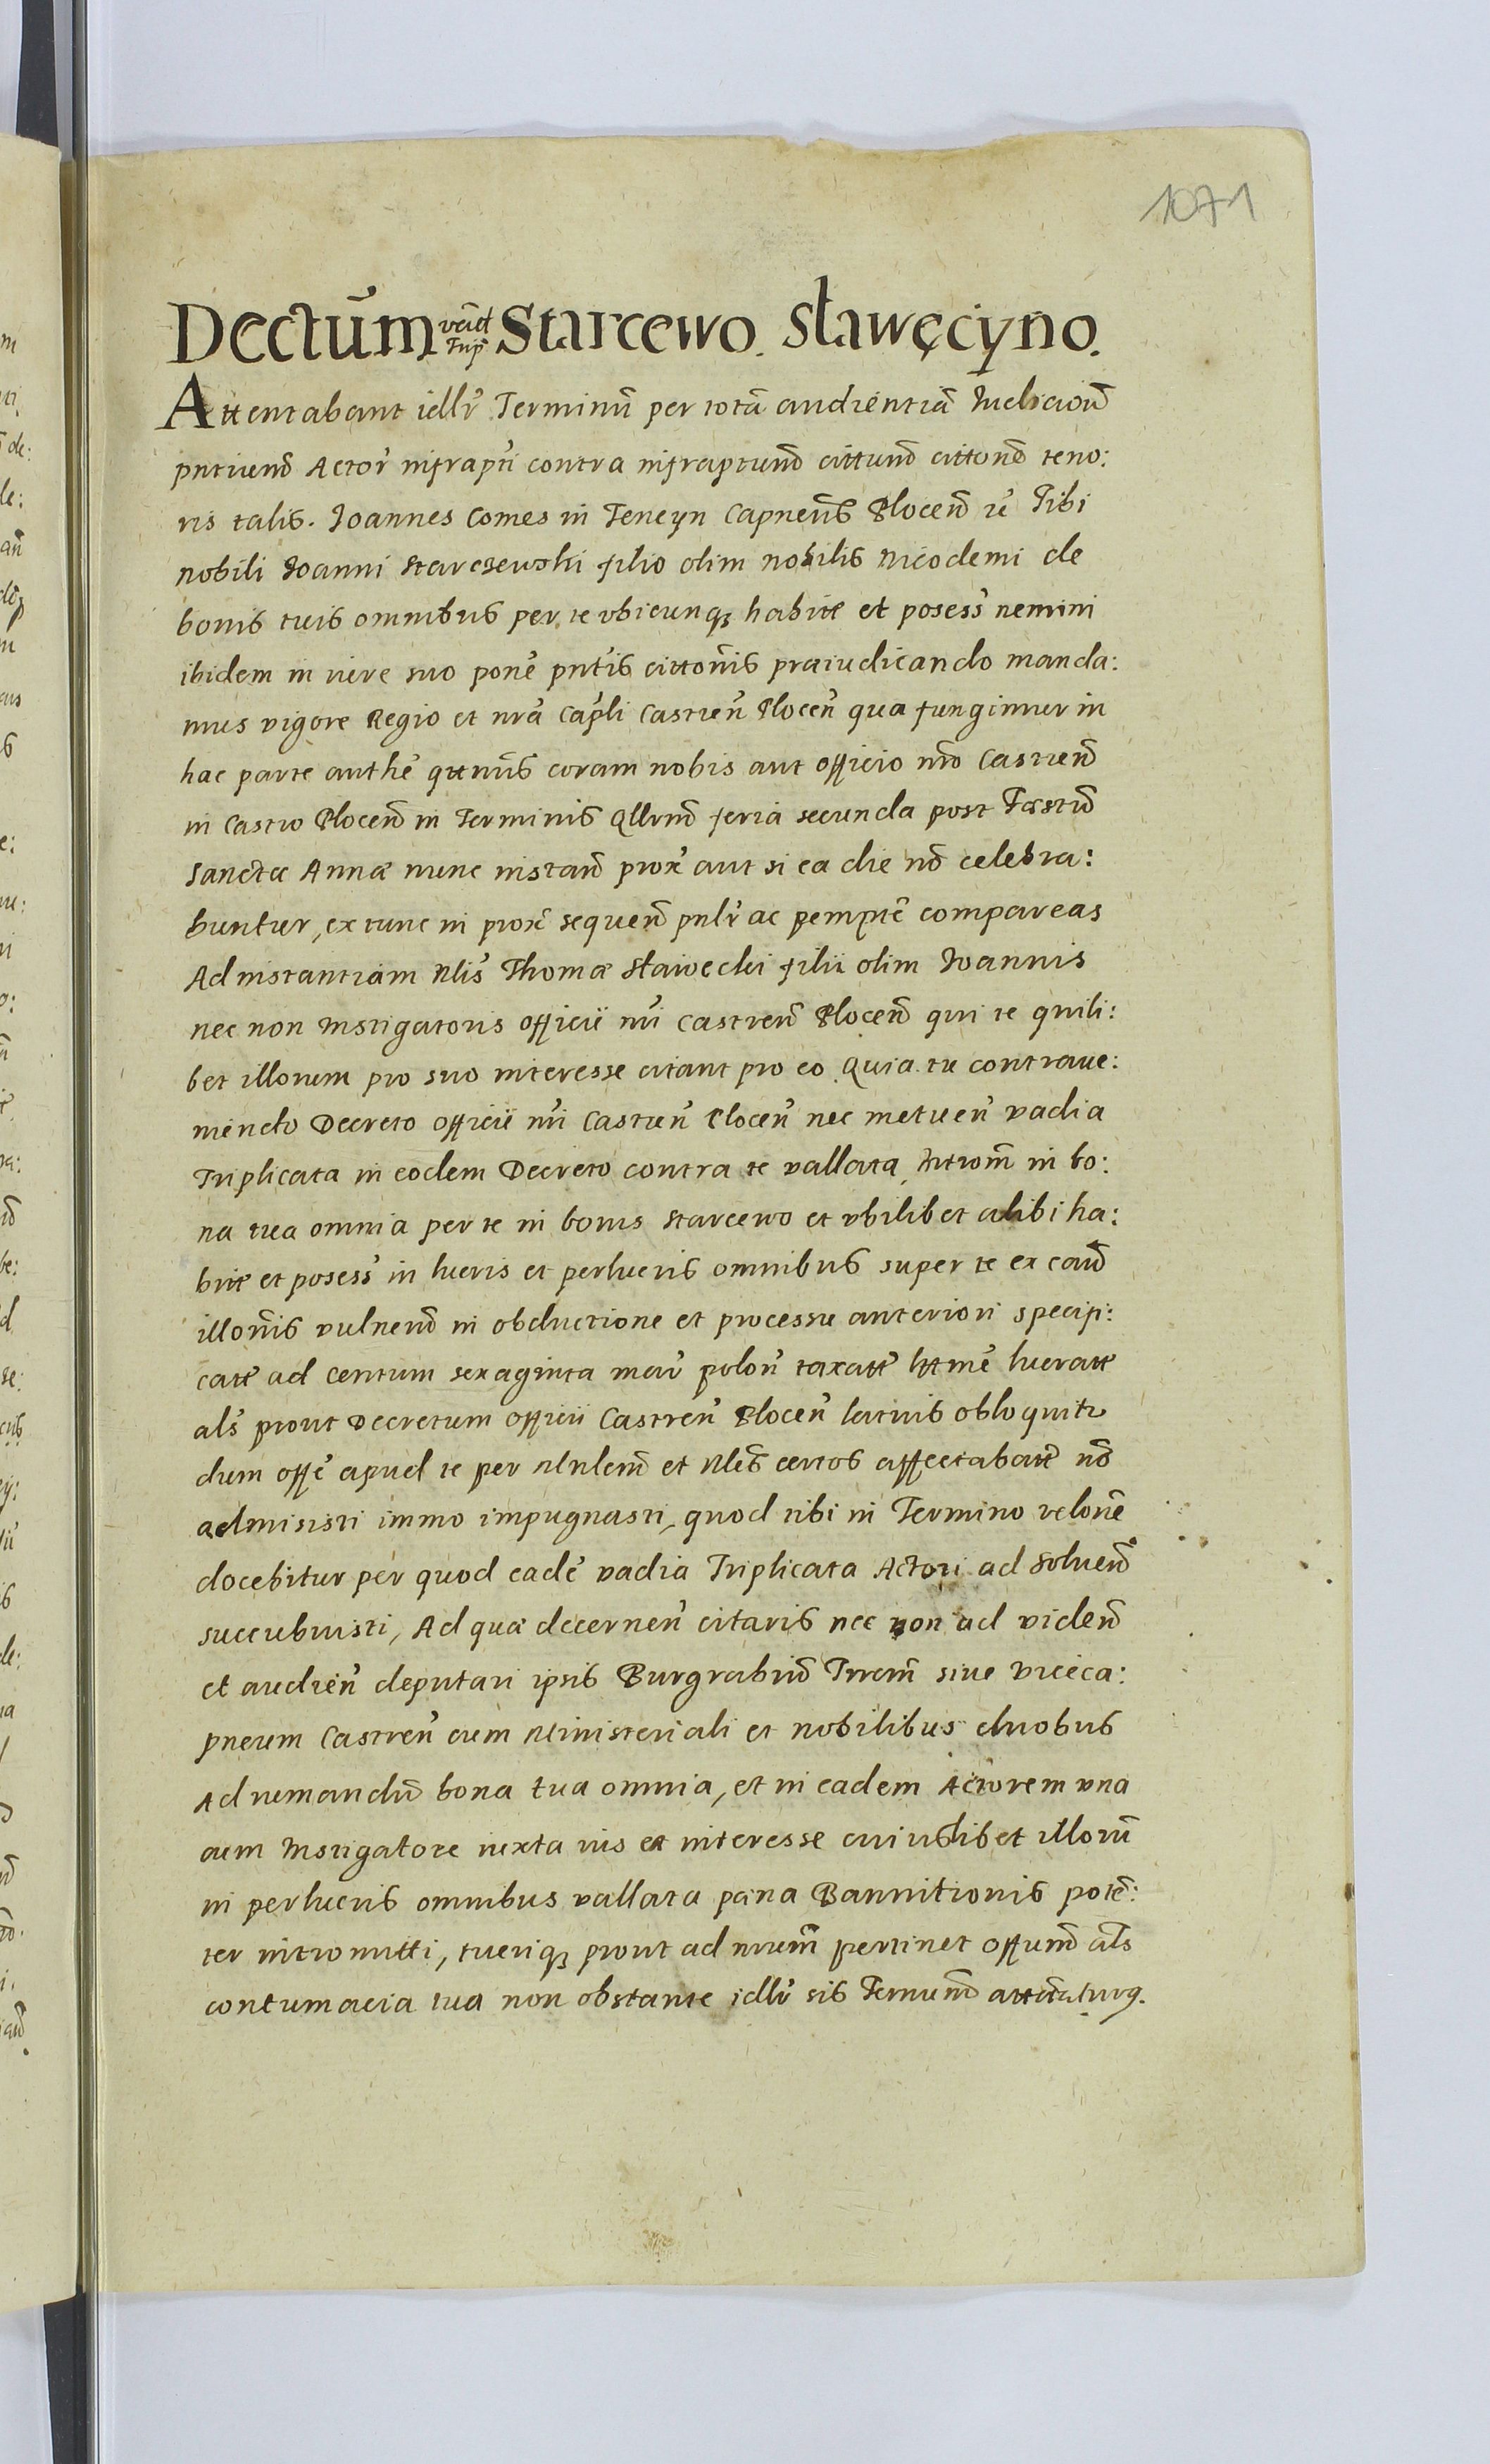 1071
Dectūm vād Trip Starcewo. Sławęcÿno.
Attentabant idlr̄ Terminū per totā audientiā Iudiciorū
pntium̄ Actor̄ infrapti contra infraptum̄ cittum̄ cittonē teno:
ris talis. Joannes Comes in Tencyn Capneūs Plocen̄ rē Tibi
nobili Joanni Starczewski filio olim nobilis Nicodemi de
bonis tuis omnibus per te vbicunq habitē et posess̄ nemini
ibidem in iure suo ponē pntis cittonis praiudicando manda:
mus vigore Regio et nrā Capli Castren̄ Plocen̄ qua fungimur in
hac parte authē qtenūs coram nobis aut officio nrō Castren̄
in Castro Plocen̄ in Terminis Qllrum̄ feria secunda post Fæstū
Sanctæ Annæ nunc instan̄ prox̄ aut si ea die nō celebra:
buntur, ex tunc in prox̄ sequen̄ pnlr̄ ac pemptē compareas
Ad instantiam Nlis Thomæ Sławecki filii olim Joannis
nec non Instigatoris officii nri Castren̄ Plocen̄ qui te quili:
bet illorum pro suo interesse citant pro eo Quia tu contraue:
niendo Decreto officii nri Castren̄ Plocen̄ nec metuen̄ vadia
Triplicata in eodem Decreto contra te vallata, Intrōm in bo:
na tua omnia per te in bonis Starcewo et vbilibet alibi ha:
bitē et posess̄ in lucris et perlucris omnibus super te ex cau̅
illonis vulnerū in obductione et processu anteriori specifi:
catē ad centum sexaginta mar̄ polon̄ taxatē lttmē lucratē
als̄ prout Decretum officii Castren̄ Plocen̄ latius obloquitr
dum offē apud te per Mnlem̄ et Nles̄ certos affectabatr̄ nō
admisisti immo impugnasti, quod tibi in Termino relonē
docebitur per quod eadē vadia Triplicata Actori ad soluen̄
succubuisti, Ad quæ decernen̄ citaris nec non ad viden̄
et audien̄ deputari ipsis Burgrabiū Trrem̄ siue viceca:
pneum Castren̄ cum Ministeriali et nobilibus duobus
Ad numandū bona tua omnia, et in eadem Actorem vna
cum Instigatore iuxta ius et interesse cuiuslibet illorū
in perlucris omnibus vallata pæna Bannitionis potē:
ter intromitti, tueriq prout ad nrum̄ pertinet offum̄ als
contumacia tua non obstante idlr̄ sis Termum̄ attētaturg.